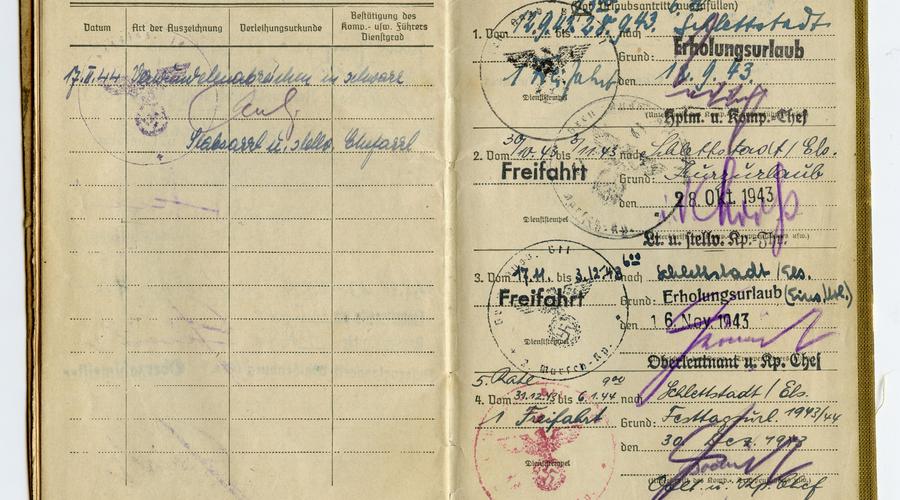 Datum
Art der Auszeichnung
Verleihungsurkunde
Bestätigung des
Komp.- usw. Führers
Dienstgrad
17.II.44 Verwundetenabzeichen in schwarz
Stabsarzt u. stellv. Chefarzt
1. Vom 12.9.43 bis 28.9.43 nach Schlettstadt
Grund: Erholungsurlaub
1 Freifahrt
den 12.9.43.
Dienststempel
Hptm. u. Komp.-Chef
2. Vom 30/10.43 bis 3/11.43 nach Schlettstadt/Els.
Freifahrt
Grund: Kurzurlaub
den 28. Okt. 1943
Dienststempel
Lt. u. stellv. Kp.-Fhr.
3. Vom 17.11. bis 3.12.43 6⁰⁰ nach Schlettstadt/Els.
Freifahrt
Grund: Erholungsurlaub
den 16. Nov. 1943
Dienststempel
Oberleutnant u. Kp. Chef
5. Rate 9⁰⁰
4. Vom 31.12.43 bis 6.1.44. nach Schlettstadt/Els.
1 Freifahrt
Grund: Festtagsurl. 1943/44
den 30. Dez. 1943
Dienststempel